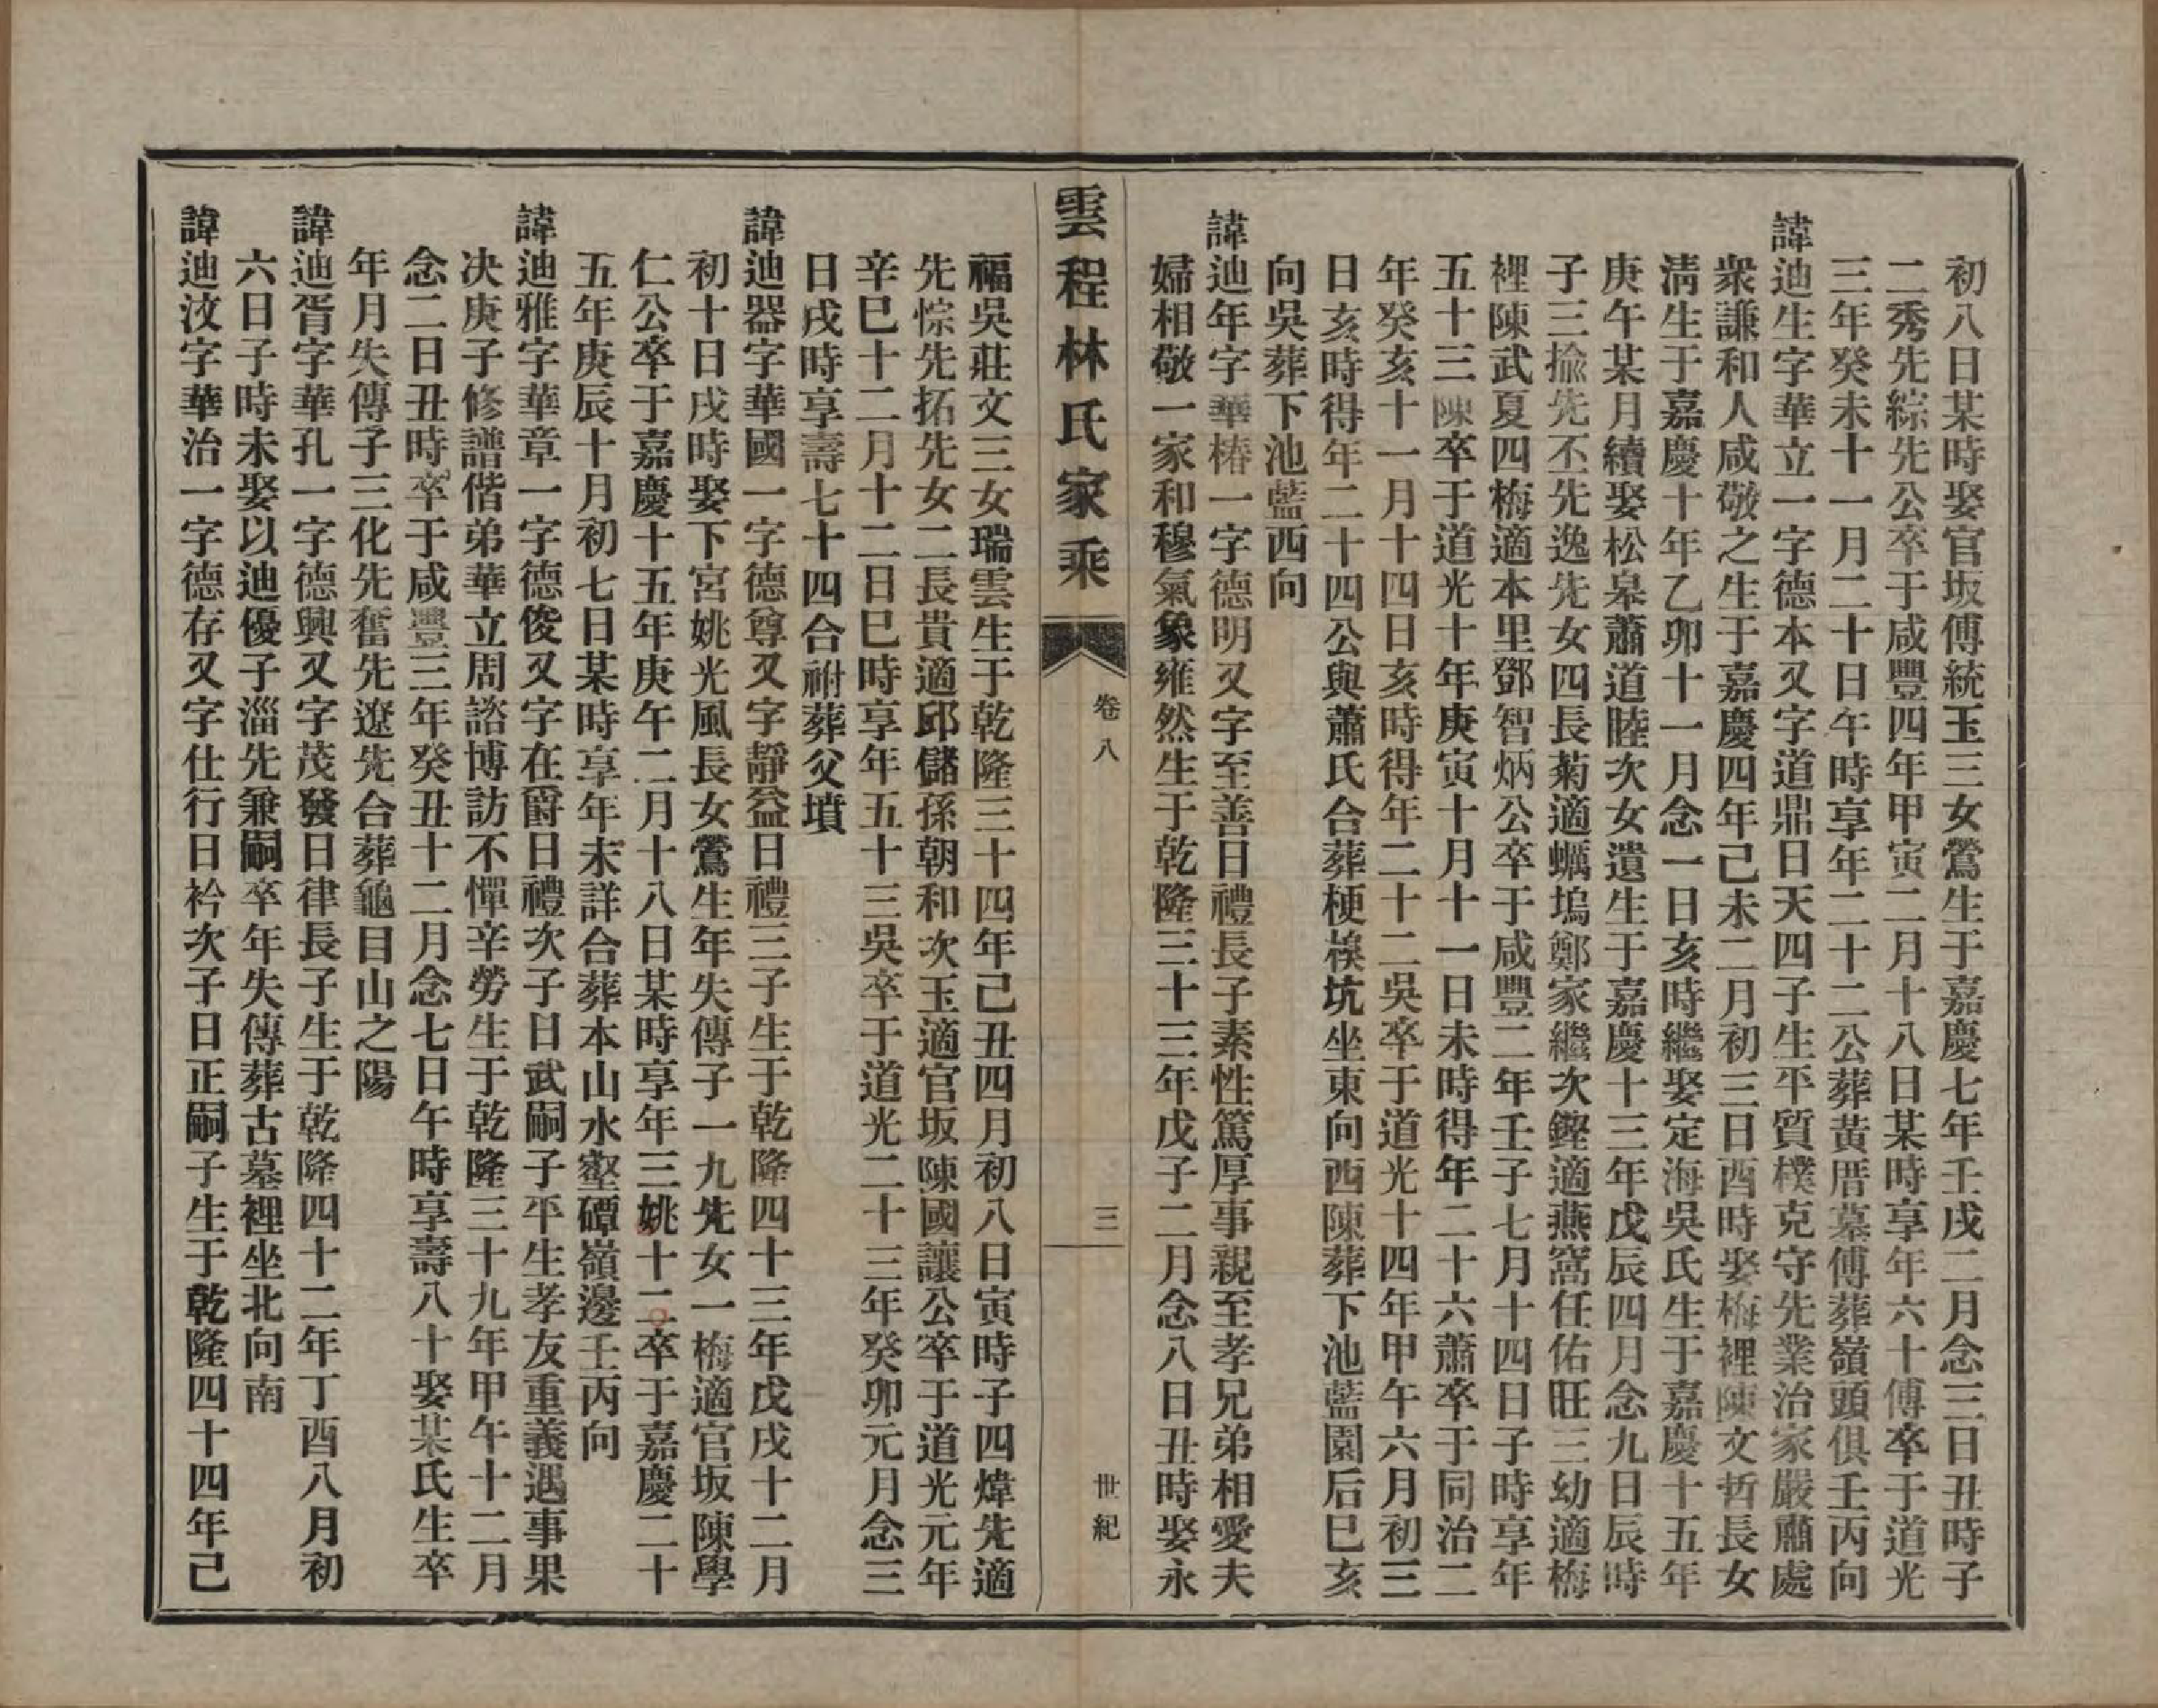 初八日某時娶官坂傅統玉三女鶯生于嘉慶七年壬戌二月念三日丑時子
二秀先綜先公卒于咸豐四年甲寅二月十八日某時享年六十傅卒于道光
三年癸未十一月二十日午時享年二十二公葬黃厝墓傅葬嶺頭俱壬丙向
諱迪生字華立一字德本又字道鼎日天四子生平質樸克守先業治家嚴肅處
衆謙和人咸敬之生于嘉慶四年己未二月初三日酉時娶梅裡陳文哲長女
淸生于嘉慶十年乙卯十一月念一日亥時繼娶定海吳氏生于嘉慶十五年
庚午某月續娶松皋蕭道睦次女遺生于嘉慶十三年戊辰四月念九日辰時
子三揄先丕先逸先女四長菊適蠣塢鄭家繼次鏗適燕窩任佑旺三幼適梅
裡陳武夏四梅適本里鄧智炳公卒于咸豐二年壬子七月十四日子時享年
五十三陳卒于道光十年庚寅十月十一日未時得年二十六蕭卒于同治二
年癸亥十一月十四日亥時得年二十二吳卒于道光十四年甲午六月初三
日亥時得年二十四公與蕭氏合葬梗模坑坐東向西陳葬下池藍園后巳亥
向吳葬下池藍西向
諱迪年字華椿一字德明又字至善日禮長子素性篤厚事親至孝兄弟相愛夫
婦相敬一家和穆氣象雍然生于乾隆三十三年戊子二月念八日丑時娶永
雲程林氏家乘 卷八 三 世紀
福吳莊文三女瑞雲生于乾隆三十四年己丑四月初八日寅時子四煒先適
先悰先拓先女二長貴適邱儲孫朝和次玉適官坂陳國讓公卒于道光元年
辛巳十二月十二日巳時享年五十三吳卒于道光二十三年癸卯元月念三
日戌時享壽七十四合祔葬父墳
諱迪器字華國一字德尊又字靜益日禮三子生于乾隆四十三年戊戌十二月
初十日戌時娶下宮姚光風長女鶯生年失傳子一九先女一梅適官坂陳學
仁公卒于嘉慶十五年庚午二月十八日某時享年三姚十二卒于嘉慶二十
五年庚辰十月初七日某時享年未詳合葬本山水壑磹嶺邊壬丙向
諱迪雅字華章一字德俊又字在爵日禮次子日武嗣子平生孝友重義遇事果
决庚子修譜偕弟華立周諮博訪不憚辛勞生于乾隆三十九年甲午十二月
念二日丑時卒于咸豐三年癸丑十二月念七日午時享壽八十娶某氏生卒
年月失傳子三化先奮先遼先合葬龜目山之陽
諱迪胥字華孔一字德興又字茂發日律長子生于乾隆四十二年丁酉八月初
六日子時未娶以迪優子淄先兼嗣卒年失傳葬古墓裡坐北向南
諱迪汶字華治一字德存又字仕行日衿次子日正嗣子生于乾隆四十四年己